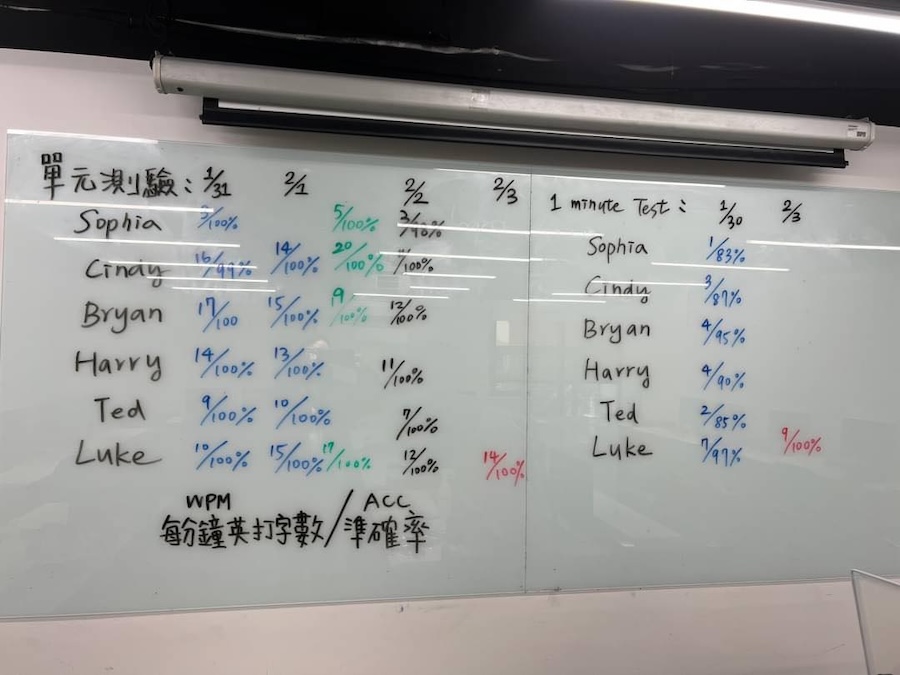 單元測驗: 1/31 2/1 2/2 2/3
Sophia 3/100% 5/100% 3/90%
Cindy 16/99% 14/100% 20/100% /100%
Bryan 17/100 15/100% 19/100% 12/100%
Harry 14/100% 13/100% 11/100%
Ted 9/100% 10/100% 7/100%
Luke 10/100% 15/100% 17/100% 12/100% 14/100%
WPM / ACC
每分鐘英打字數/準確率
1 minute Test: 1/30 2/3
Sophia 1/83%
Cindy 3/87%
Bryan 4/95%
Harry 4/90%
Ted 2/85%
Luke 7/97% 9/100%